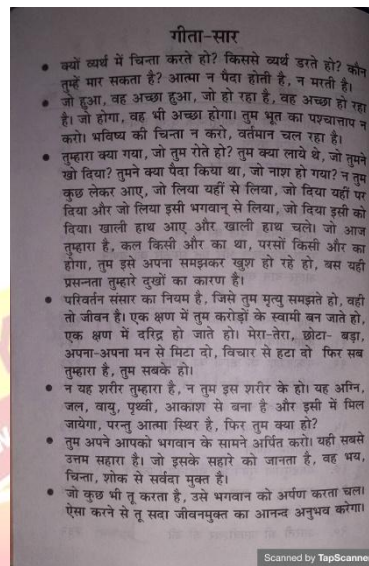 गीता-सार
• क्यों व्यर्थ में चिन्ता करते हो? किससे व्यर्थ डरते हो? कौन
तुम्हें मार सकता है? आत्मा न पैदा होती है, न मरती है।
• जो हुआ, वह अच्छा हुआ, जो हो रहा है, वह अच्छा हो रहा
है। जो होगा, वह भी अच्छा होगा। तुम भूत का पश्चाताप न
करो। भविष्य की चिन्ता न करो, वर्तमान चल रहा है।
• तुम्हारा क्या गया, जो तुम रोते हो? तुम क्या लाये थे, जो तुमने
खो दिया? तुमने क्या पैदा किया था, जो नाश हो गया? न तुम
कुछ लेकर आए, जो लिया यहीं से लिया, जो दिया यहीं पर
दिया और जो लिया इसी भगवान् से लिया, जो दिया इसी को
दिया। खाली हाथ आए और खाली हाथ चले। जो आज
तुम्हारा है, कल किसी और का था, परसों किसी और का
होगा, तुम इसे अपना समझकर खुश हो रहे हो, बस यही
प्रसन्नता तुम्हारे दुखों का कारण है।
• परिवर्तन संसार का नियम है, जिसे तुम मृत्यु समझते हो, वही
तो जीवन है। एक क्षण में तुम करोड़ों के स्वामी बन जाते हो,
एक क्षण में दरिद्र हो जाते हो। मेरा-तेरा, छोटा- बड़ा,
अपना-अपना मन से मिटा दो, विचार से हटा दो फिर सब
तुम्हारा है, तुम सबके हो।
• न यह शरीर तुम्हारा है, न तुम इस शरीर के हो। यह अग्नि,
जल, वायु, पृथ्वी, आकाश से बना है और इसी में मिल
जायेगा, परन्तु आत्मा स्थिर है, फिर तुम क्या हो?
• तुम अपने आपको भगवान के सामने अर्पित करो। यही सबसे
उत्तम सहारा है। जो इसके सहारे को जानता है, वह भय,
चिन्ता, शोक से सर्वदा मुक्त है।
• जो कुछ भी तू करता है, उसे भगवान को अर्पण करता चल।
ऐसा करने से तू सदा जीवनमुक्त का आनन्द अनुभव करेगा।
Scanned by TapScanner